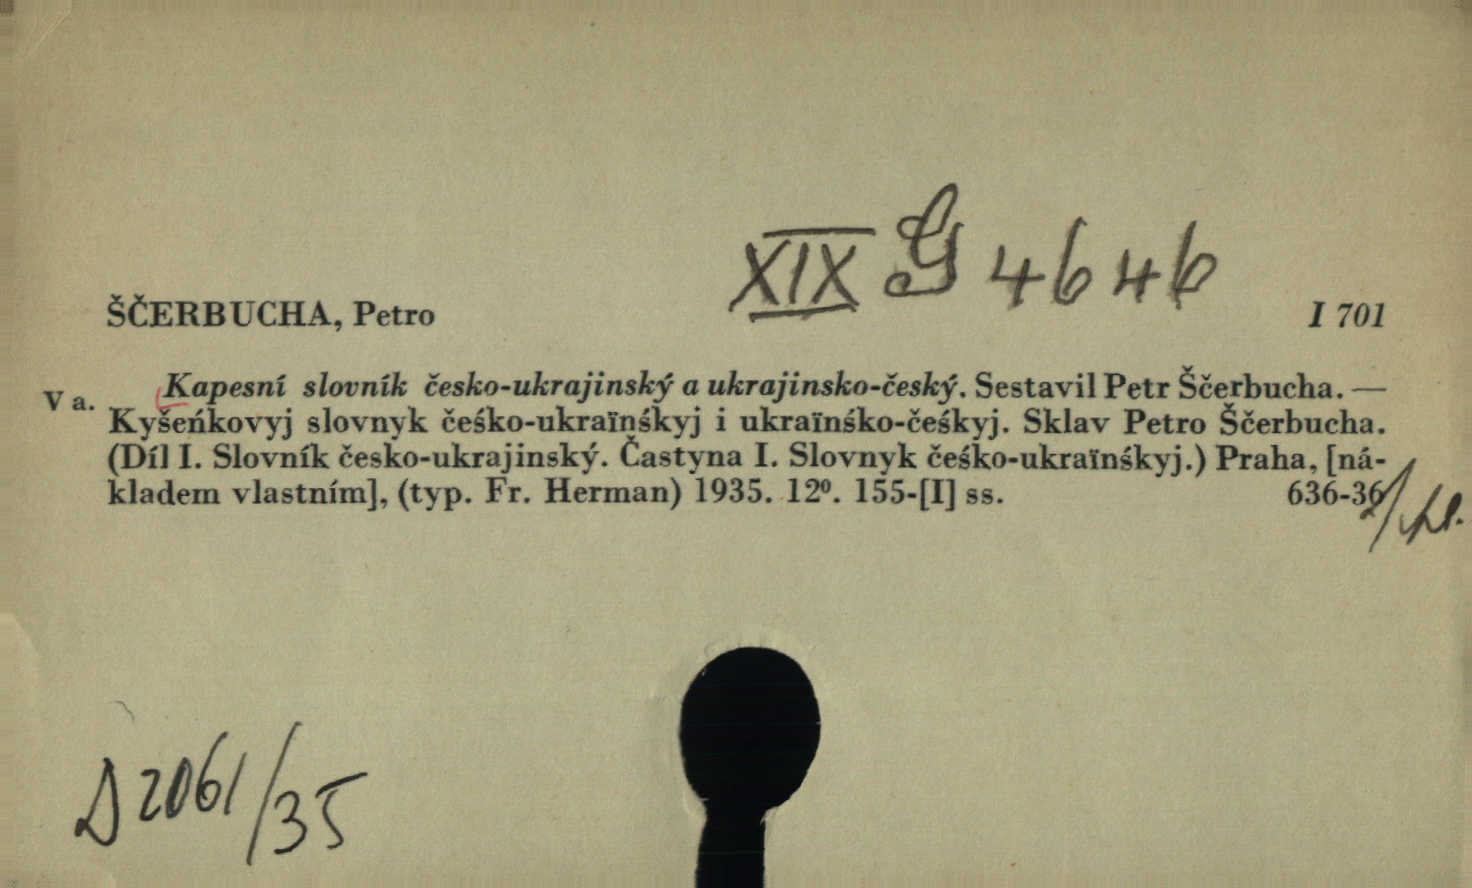 XIX G 4646
ŠČERBUCHA, Petro I 701
V a. Kapesní slovník česko-ukrajinský a ukrajinsko-český. Sestavil Petr Ščerbucha. —
Kyšeńkovyj slovnyk čeśko-ukraïnśkyj i ukraïnśko-čeśkyj. Sklav Petro Ščerbucha.
(Díl I. Slovník česko-ukrajinský. Častyna I. Slovnyk čeśko-ukraïnśkyj.) Praha, [ná-
kladem vlastním], (typ. Fr. Herman) 1935. 12⁰. 155-[I] ss. 636-36
D 2061/35